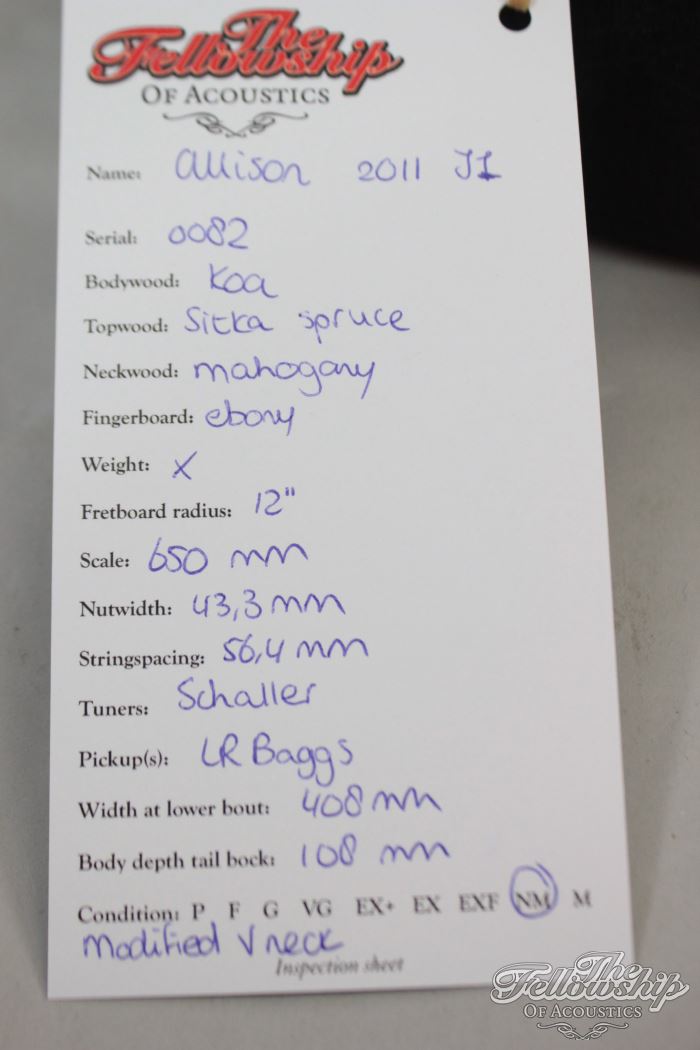 The
Fellowship
OF ACOUSTICS
Name: Allison 2011 J1
Serial: 0082
Bodywood: Koa
Topwood: Sitka spruce
Neckwood: mahogany
Fingerboard: ebony
Weight: X
Fretboard radius: 12"
Scale: 650 mm
Nutwidth: 43,3 mm
Stringspacing: 56,4 mm
Tuners: Schaller
Pickup(s): LR Baggs
Width at lower bout: 408 mm
Body depth tail bock: 108 mm
Condition: P F G VG EX+ EX EXF NM M
Modified V neck
Inspection sheet
The
Fellowship
OF ACOUSTICS